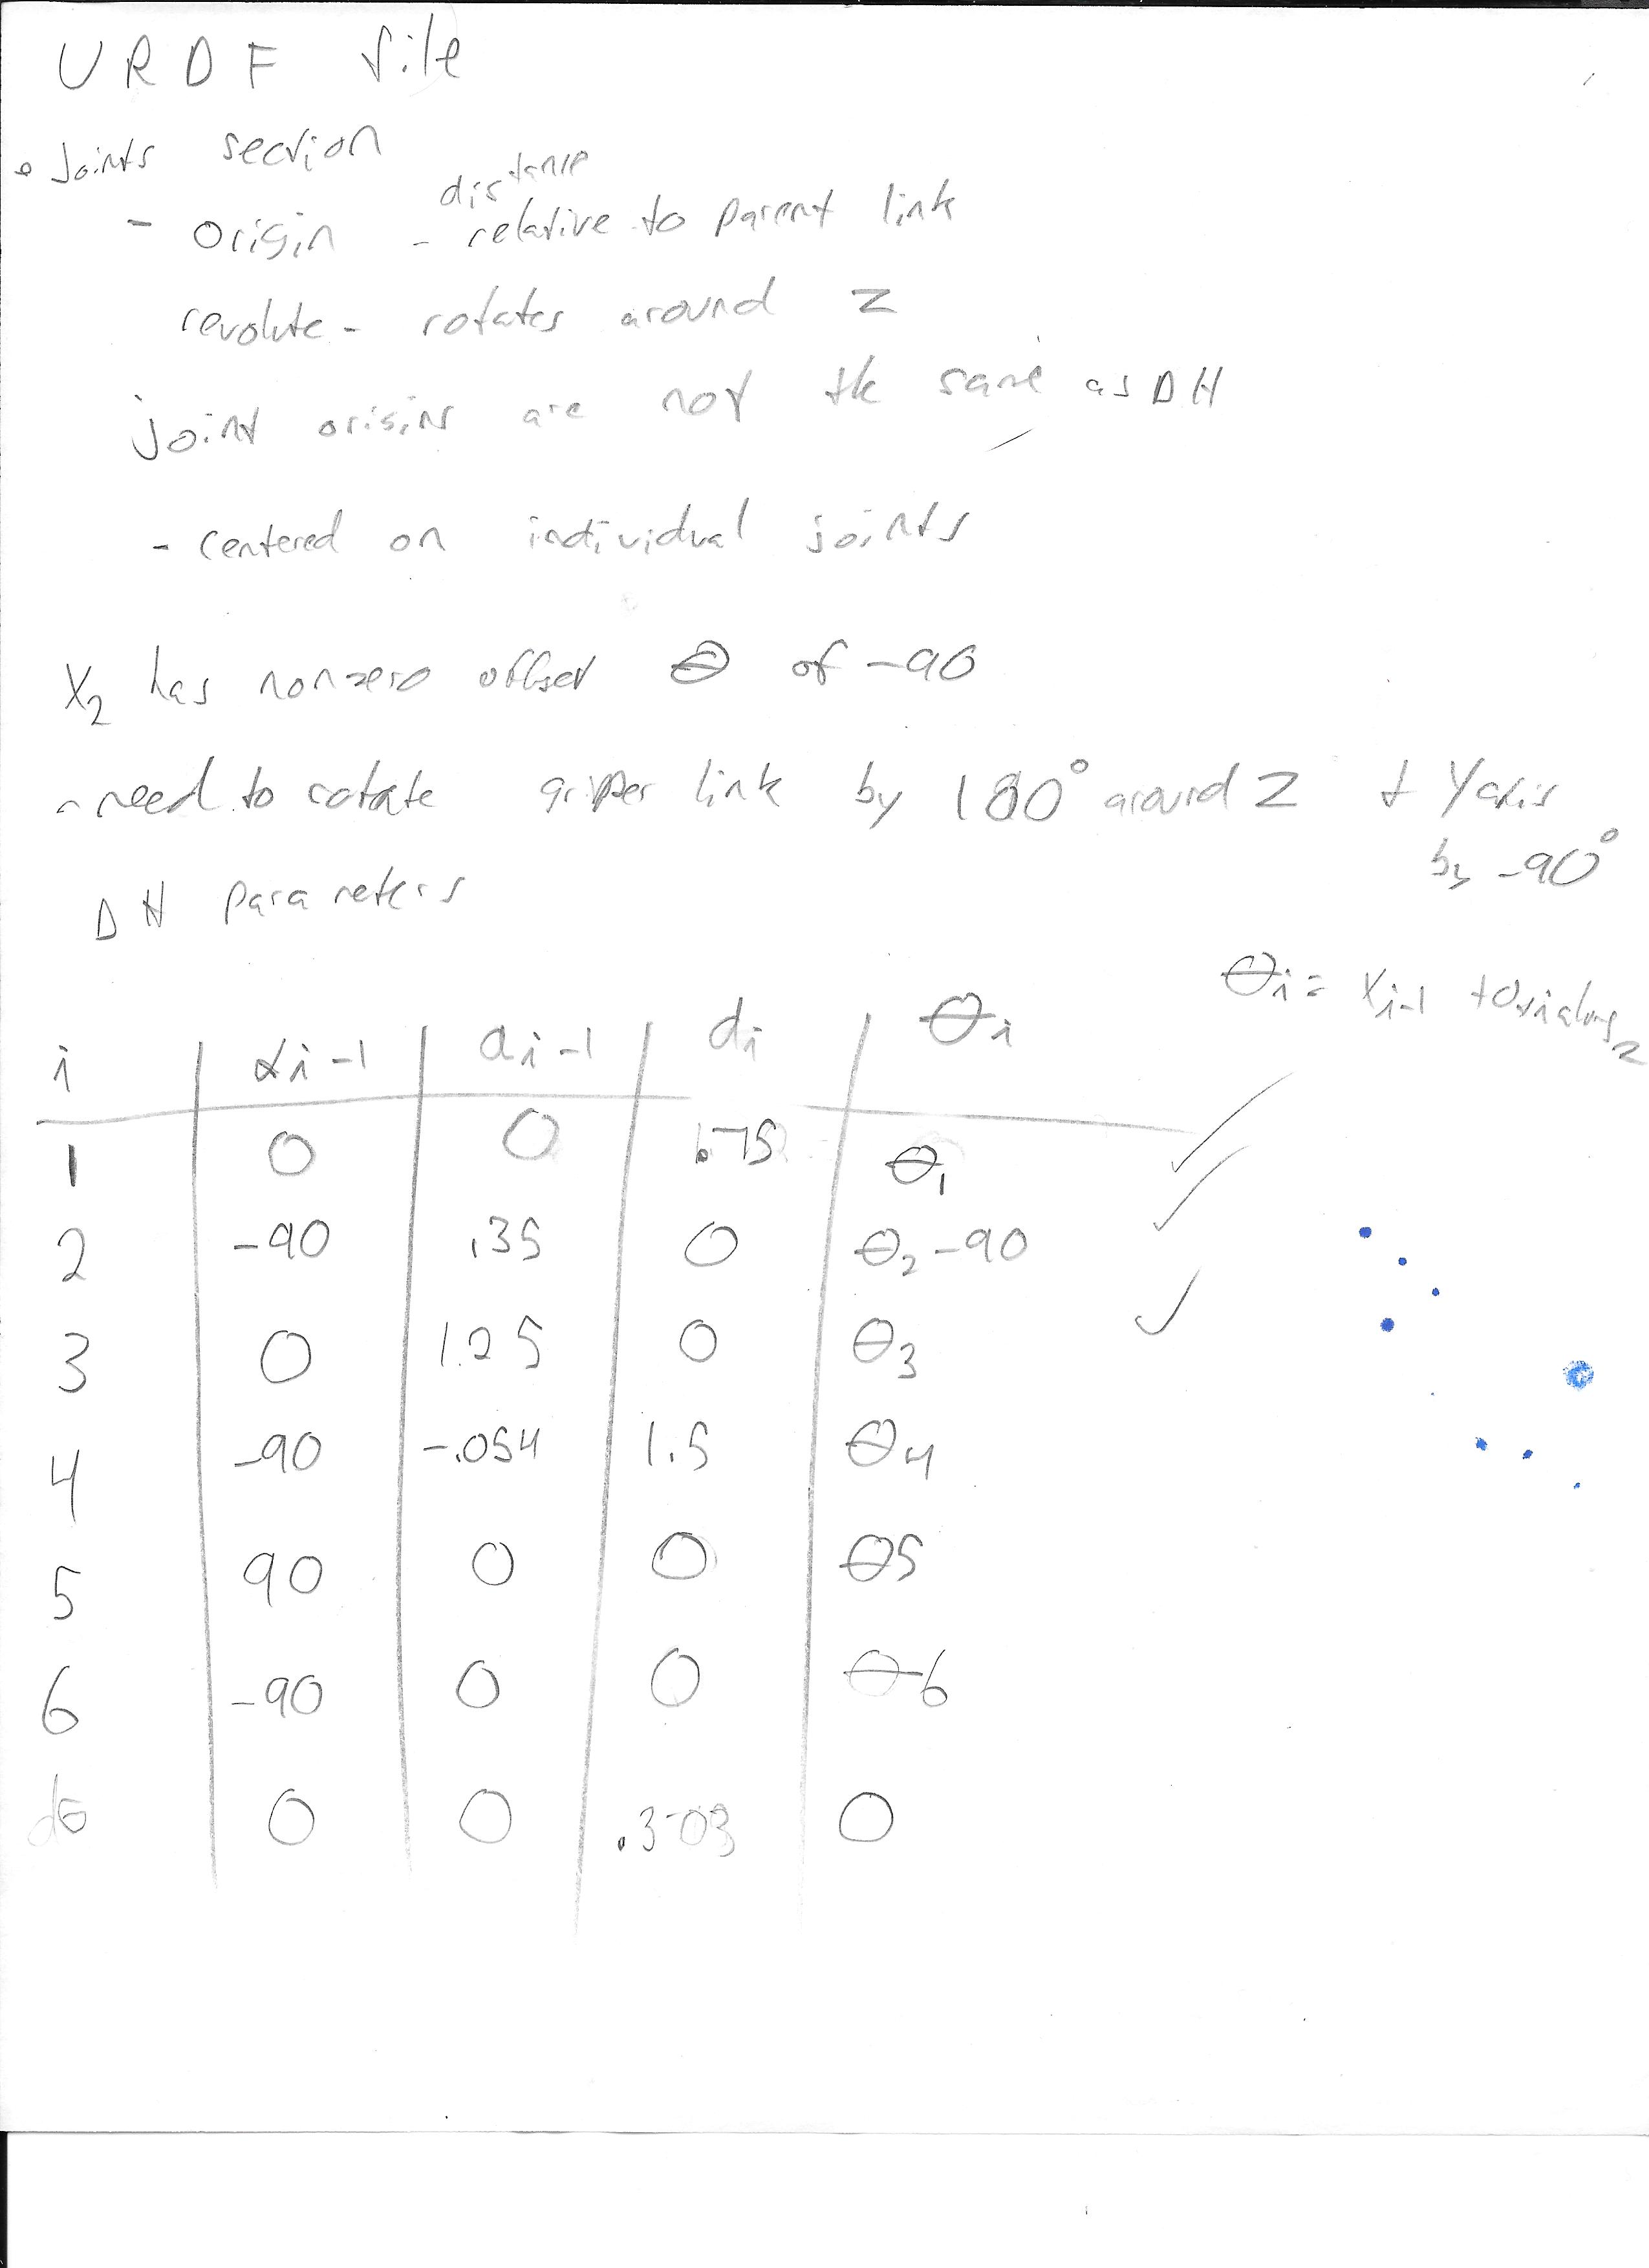 URDF file
• Joints section
- origin - distance relative to parent link
revolute - rotates around Z
joint origins are not the same as DH
- centered on individual joints
X2 has nonzero offset θ of -90
- need to rotate gripper link by 180° around Z + Y axis
by -90°
DH parameters
θi = Xi-1 to xi along z
i αi-1 ai-1 di θi
1 0 0 .75 θ1
2 -90 .35 0 θ2-90
3 0 1.25 0 θ3
4 -90 -.054 1.5 θ4
5 90 0 0 θ5
6 -90 0 0 θ6
0 0 .303 0